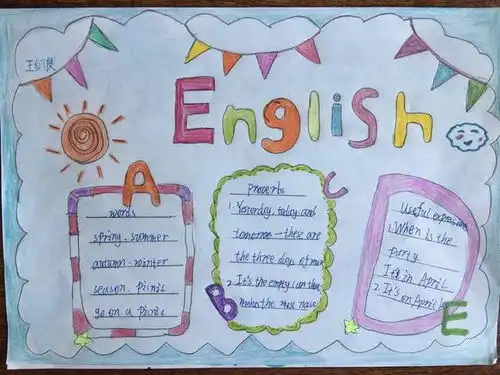 王
English
A
words
spring. summer
autumn. winter
season. picnic
go on a picnic
B
C
Proverbs
1. Yesterday. today and
tomorrow—these are
the three days of man
2. It's the empty can that
makes the most noise
D
Useful expressions
1. When is the
party.
It's in April
2. It's on April
E